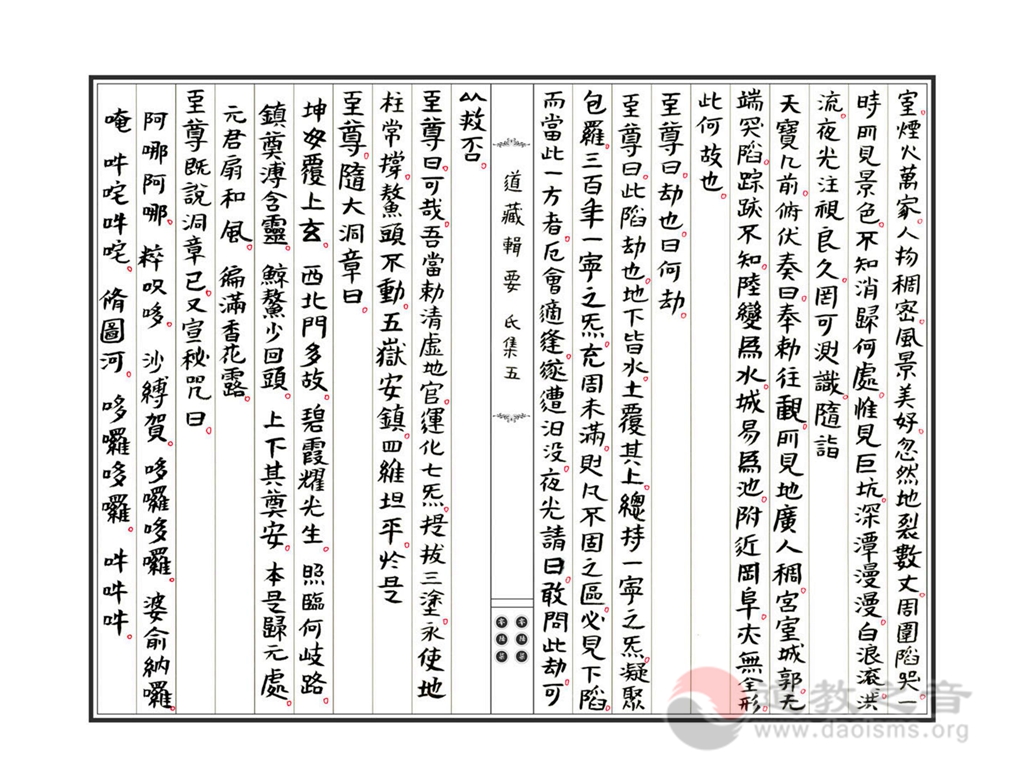 室煙火萬家人物稠密風景美好忽然地裂數丈周圍陷哭一
時所見景色不知消歸何處惟見巨坑深潭漫漫白浪滾洪
流夜光注視良久罔可測識隨詣
天寶几前俯伏奏曰奉勅往觀所見地廣人稠宮室城郭无
端哭陷踪跡不知陸變爲水城易爲池附近岡阜亦無全形
此何故也
至尊曰劫也曰何劫
至尊曰此陷劫也地下皆水土覆其上總持一寧之炁凝聚
包羅三百年一寧之炁充周未滿則凡不固之區必見下陷
而當此一方者厄會適逢遂遭汩没夜光請曰敢問此劫可
以救否
道藏輯要 氐集五
至尊曰可哉吾當勅清虛地官運化七炁授拔三塗永使地
柱常撐鰲頭不動五嶽安鎮四維坦平於是
至尊隨大洞章曰
坤母覆上玄 西北門多故 碧霞耀光生 照臨何岐路
鎮奠溥含靈 鯨鰲少回頭 上下其奠安 本是歸元處
元君扇和風 徧滿香花露
至尊既說洞章已又宣秘咒曰
阿哪阿哪 粹㕮哆 沙縛賀 哆囉哆囉 婆俞納囉
唵 吽咤吽咤 脩圖河 哆囉哆囉 吽吽吽
道教之音
www.daoisms.org